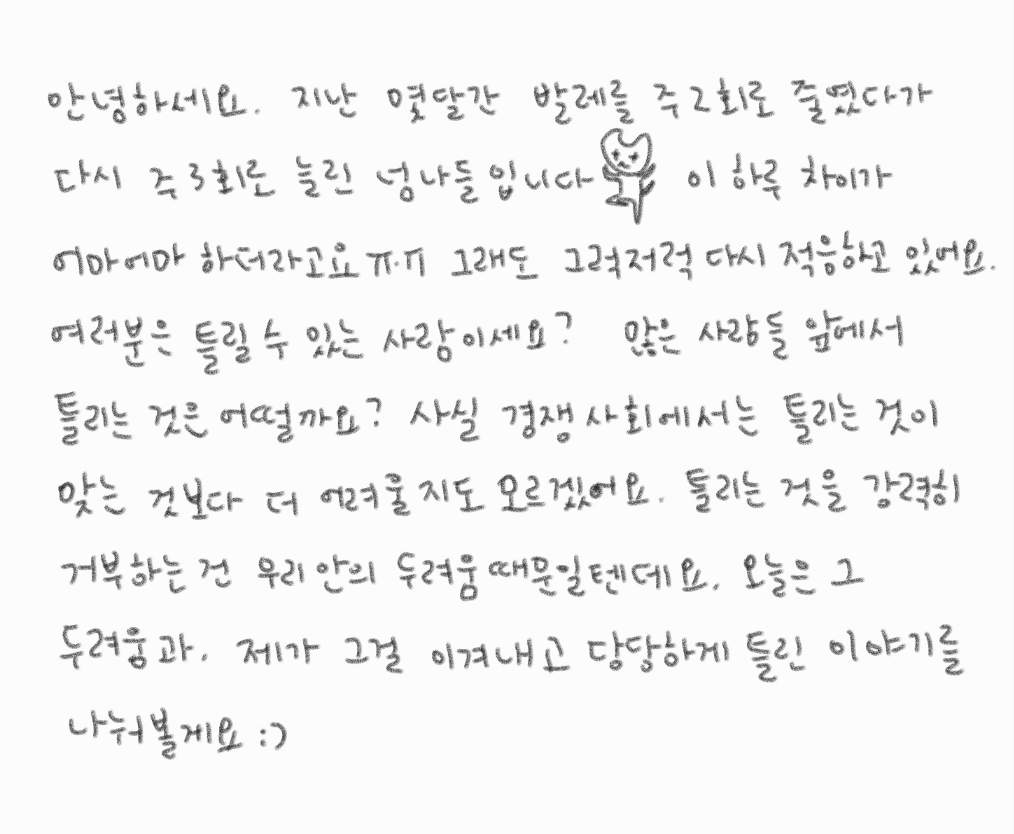 안녕하세요. 지난 몇달간 발레를 주2회로 줄였다가
다시 주3회로 늘린 넝나들입니다 이 하루 차이가
어마어마 하더라고요ㅠ.ㅠ 그래도 그럭저럭 다시 적응하고 있어요.
여러분은 틀릴 수 있는 사람이세요? 많은 사람들 앞에서
틀리는 것은 어떨까요? 사실 경쟁사회에서는 틀리는 것이
맞는 것보다 더 어려울지도 모르겠어요. 틀리는 것을 강력히
거부하는 건 우리 안의 두려움때문일텐데요. 오늘은 그
두려움과. 제가 그걸 이겨내고 당당하게 틀린 이야기를
나눠볼게요 :)